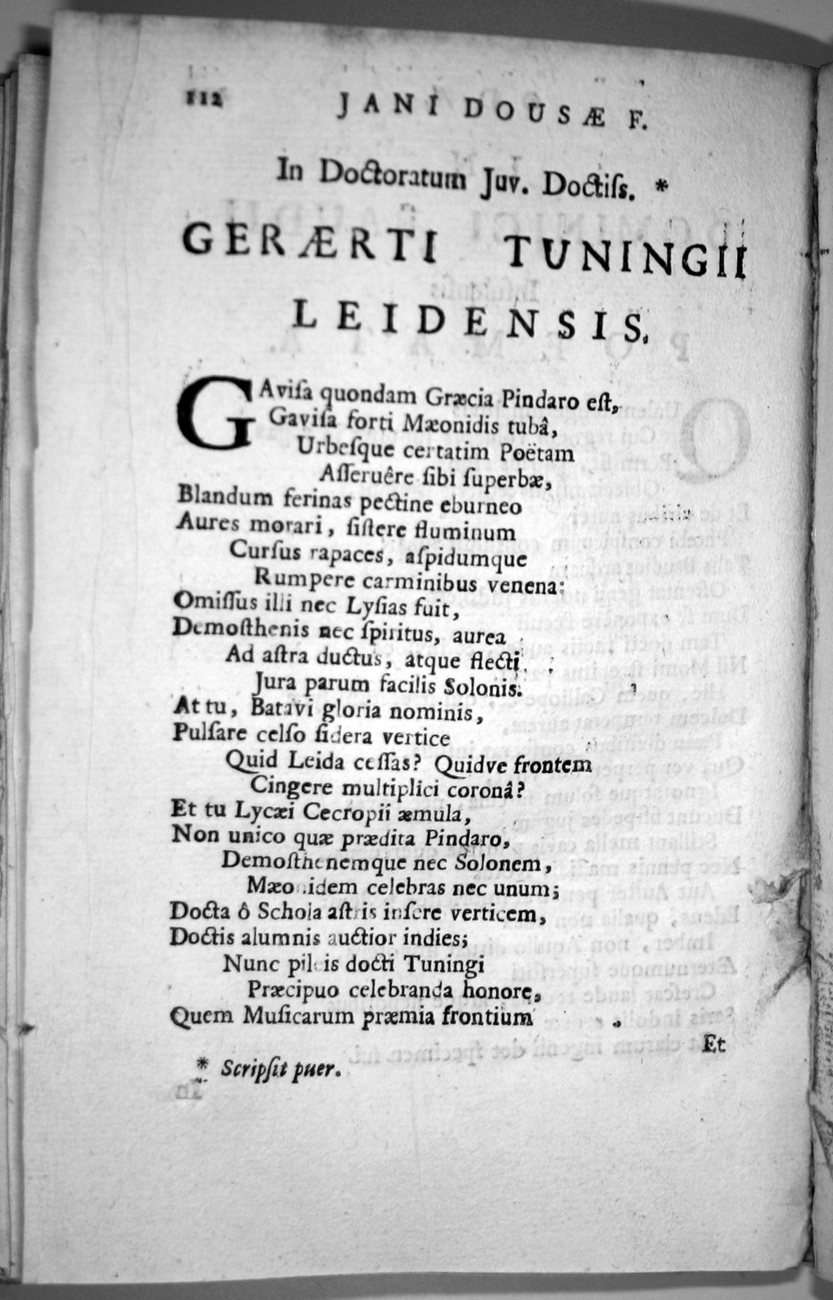 112 JANI DOUSÆ F.
In Doctoratum Juv. Doctiſs. *
GERÆRTI TUNINGII
LEIDENSIS.
GAviſa quondam Græcia Pindaro eſt,
Gaviſa forti Mæonidis tubâ,
Urbeſque certatim Poëtam
Aſſeruêre ſibi ſuperbæ,
Blandum ferinas pectine eburneo
Aures morari, ſiſtere fluminum
Curſus rapaces, aſpidumque
Rumpere carminibus venena:
Omiſſus illi nec Lyſias fuit,
Demoſthenis nec ſpiritus, aurea
Ad aſtra ductus, atque flecti
Jura parum facilis Solonis.
At tu, Batavi gloria nominis,
Pulſare celſo ſidera vertice
Quid Leida ceſſas? Quidve frontem
Cingere multiplici coronâ?
Et tu Lycæi Cecropii æmula,
Non unico quæ prædita Pindaro,
Demoſthenemque nec Solonem,
Mæonidem celebras nec unum;
Docta ô Schola aſtris inſere verticem,
Doctis alumnis auctior indies;
Nunc pileis docti Tuningi
Præcipuo celebranda honore,
Quem Muſicarum præmia frontium
Et
* Scripſit puer.